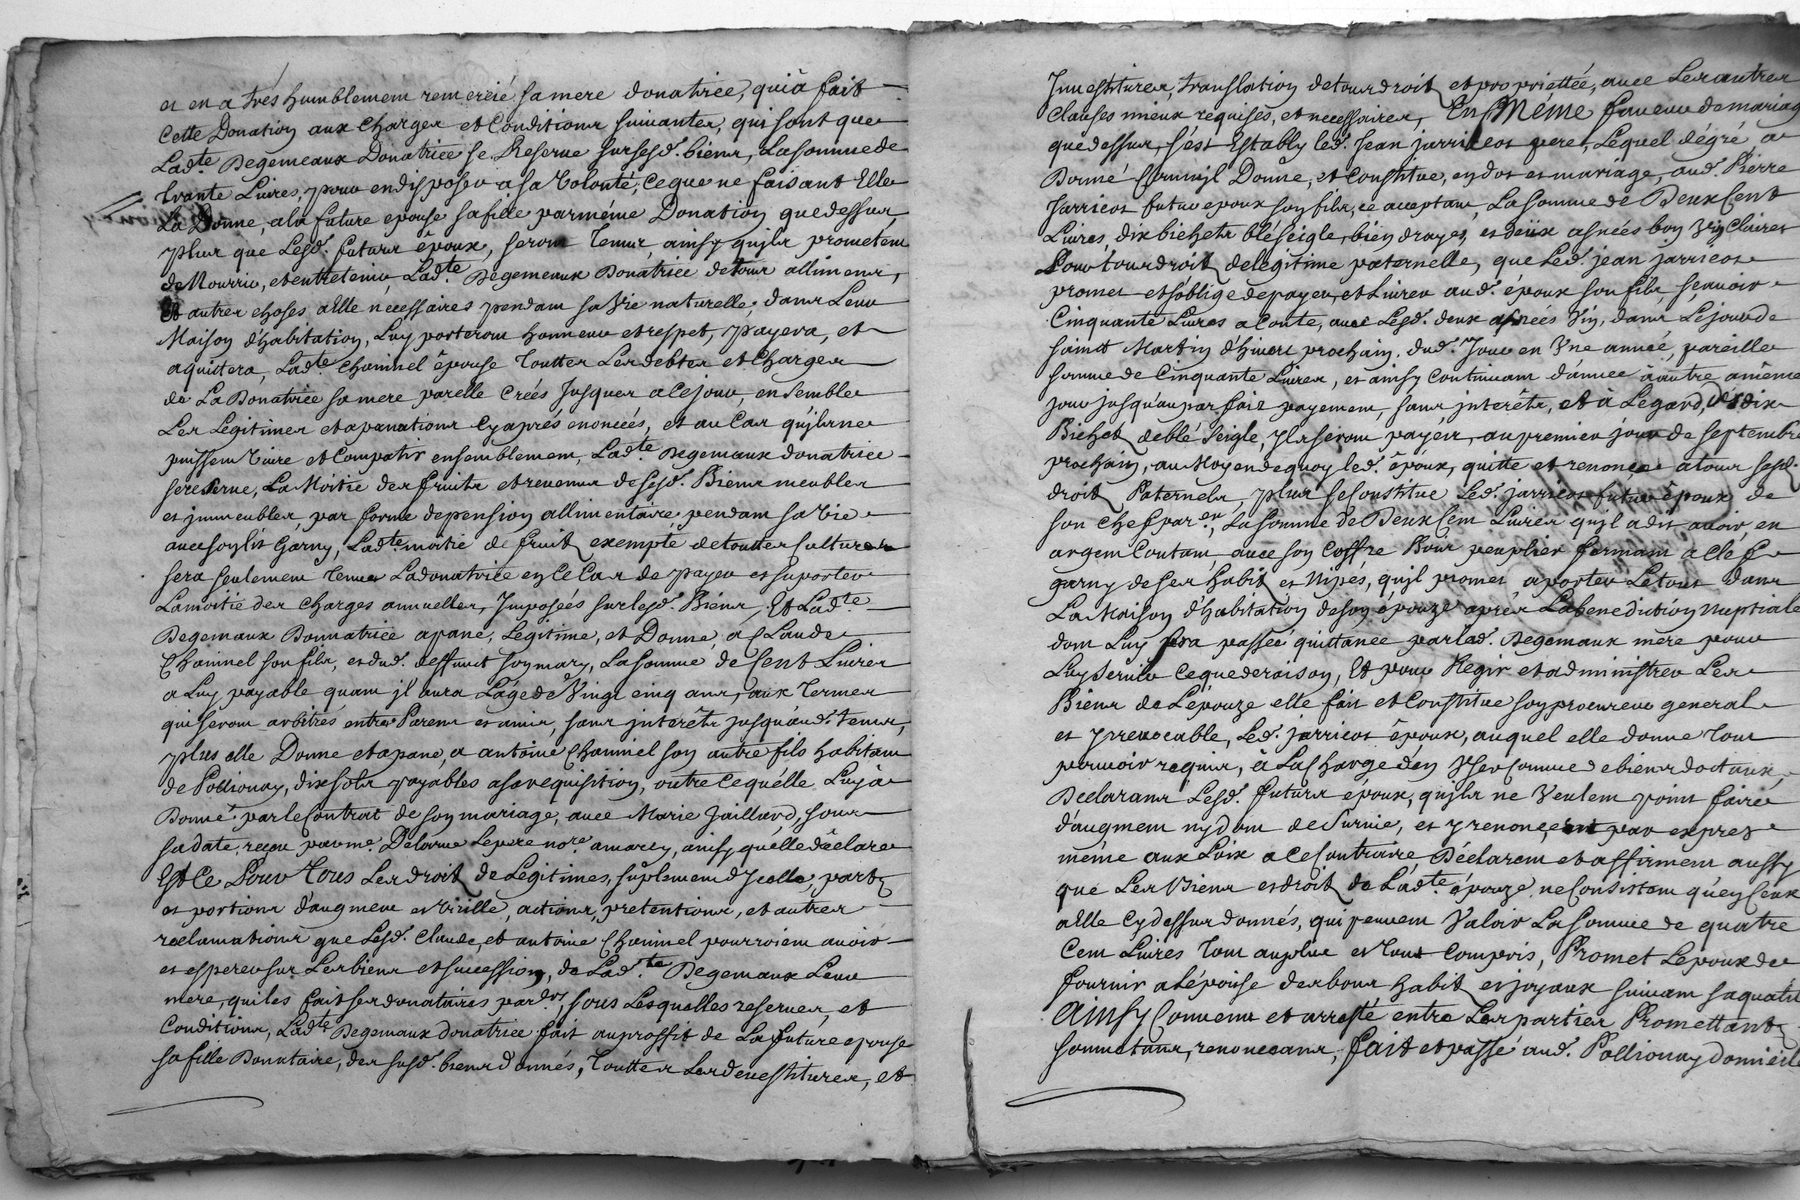 et en a trés humblement remercié sa mere donatrice, qui a fait
Cette Donation aux charges et Conditions suivantes, qui sont que
Lad.te Degemeaux Donatrice se Reserve sur sesd. biens, La somme de
trante Livres, pour en disposer a sa volonté, ce que ne faisant Elle
La Donne, a la future epouse sa fille par méme Donation que dessus
plus que Lesd. futurs époux, seront tenus, ainsy qu'ils prometent
de Nourrir, et entretenir, Lad.te Degemeaux Donatrice de tous allimens,
Et autres choses a elle necessaires pendant sa vie naturelle, dans Leur
Maison d'habitation, Luy porteront honneur et respet, payera, et
aquittera, Lad.te Chaninel épouse touttes Les debtes et charges
de La Donatrice sa mere par elle créés Jusques a ce jour, ensemble
Les Legitimes et apanations cy aprés enoncéés, et au Cas qu'ils ne
puissent vivre et Compatir ensemblement, Lad.te Degemeaux donatrice
se reserve, La Moitié des fruits et revenus de sesd. Biens meubles
et immeubles, par forme de pension allimentaire pendant sa vie
avec son lit Garny, Lad.te moitié de fruits exempte de toutte Culture
sera seulement tenue La donatrice en ce Cas de payer et suporter
La moitié des charges annuelles, Imposéés sur lesd. Biens, Et Lad.te
Degemaux Donnatrice apane, Legitime, et Donne, a Claude
Chaninel son fils, et dud. deffunt son mary, La somme de Cent Livres
a Luy payable quant jl aura L'age de Vingt cinq ans, aux termes
qui seront arbitrés entre Parens et amis, sans interêts jusqu'aud. tems,
plus elle Donne et apane, a antoine Chaninel son autre fils habitant
de Pollionay, dix sols payables a sa requisition, outre ce qu'elle Luy a
Donné par le Contrat de son mariage, avec Marie Jaillard, sous
sa date, reçeu par me. Delorme Le pere no.re a marcy, ainsy qu'elle déclare
Et Ce Pour Tous Les droits de Legitimes, suplement d'Jcelle, parts
et portions d'augment et virille, actions, pretentions, et autres
reclamations que Lesd. Claude, et antoine Chaninel pourroient avoir
et esperer sur Les biens et succession, de Lad.te Degemaux Leur
mere, qui les fait ses donataires par sous Lesquelles reserves, et
Conditions, Lad.te Degemaux donatrice fait au proffit de La future epouse
sa fille Donataire, des susd. biens donnés, Touttes Les devestitures, et
Jnvestitures, translation de tous droits et propriettée, avec Les autres
Clauses mieux requises, et necessaires, En Même faveur de mariage
que dessus, s'est Estably led. Jean jarricot pere, Lequel dégré a
Donné Donne, et Constitue, en dot et mariage, aud. Pierre
Jarricot futur epoux son fils, ce acceptant, La somme de Deux Cent
Livres, dix bichets blé seigle, bien drayes, et deüx asnéés bon Vin Clairet
Pour tous droits de legitime paternelle, que Led. jean jarricot
promet et s'oblige de payer, et Livrer aud. époux son fils, sçavoir
Cinquante Livres a Conte, avec Lesd. deux asnéés Vin, dans Le jour de
saint Martin d'hivert prochain, dud. Jour en Vne année, pareille
somme de Cinquante Livres, et ainsy Continuant d'annee a autre a même
jour jusqu'au parfait payement, sans interêts, et à Legard, des dix
Bichets de blé Seigle, jls seront payés, au premier jour de septembre
prochain, au Moyen de quoy led. époux, quitte et renonce a tous sesd.
droits Paternels, plus se Constitue Led. jarricot futur époux de
son chef par en, La somme de Deux Cent Livres qu'jl a dit avoir en
argent Contant, avec son Coffre Bois peuplier fermant a clef
garny de ses habits et nipés, qu'jl promet aporter Le tout dans
La Maison d'habitation de son épouze aprés La benediction nuptiale
dont Luy sera passée quittance par lad. Degemaux mere pour
Luy servir ce que de raison, Et pour Regir et administrer Les
Biens de L'épouze elle fait et Constitue son procureur general
et jrrevocable, Led. jarricot époux, auquel elle donne tout
pouvoir requis, à La charge d'en Vser Comme de biens dotaux,
Declarans Lesd. futurs époux, qu'jls ne Veulent point faire
d'augment ny don de survie, et y renoncent par exprez
même aux Loix a ce Contraire, Déclarent et affirment aussy
que Les Biens et droits de Lad.te épouze ne Consistent qu'en Ceux
a elle cy dessus donnés, qui peuvent Valoir La somme de quatre
Cent Livres tout au plus et tout Compris, Promet L'époux de
fournir a L'épouse des bons habits et joyaux suivant sa qualité
Ainsy Convenu et arresté entre Les parties Promettants
soumettans, renonceans, fait et passé aud. Pollionay domicile